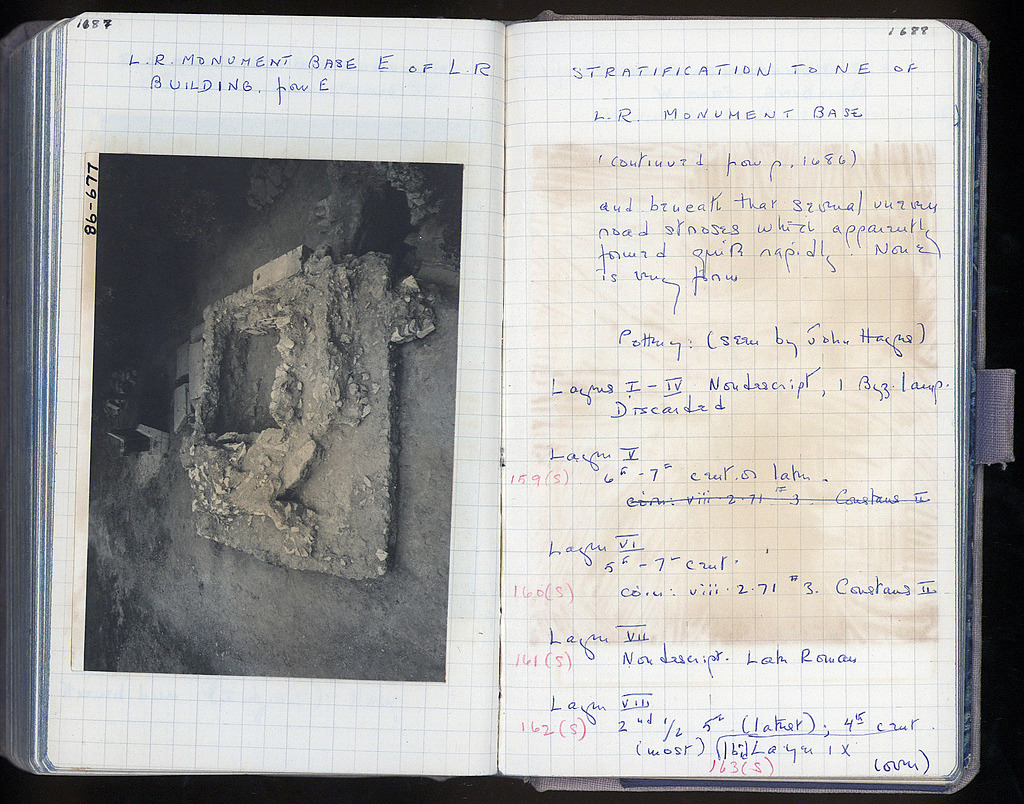 1687
L.R. MONUMENT BASE E OF L.R
BUILDING. from E
86-677
1688
STRATIFICATION TO NE OF
L.R. MONUMENT BASE
(continued from p. 1686)
and beneath that several uneven
road stroses which apparently
formed quite rapidly. None
is very firm
Pottery: (seen by John Hayes)
Layers I - IV Nondescript, 1 Byz. lamp.
Discarded
Layer V
159(S) 6th - 7th cent. or later.
coin: viii·2·71 #3. Constans II
Layer VI
5th - 7th cent.
160(S) coin: viii·2·71 #3. Constans II
Layer VII
161(S) Nondescript. Late Roman
Layer VIII
162(S) 2nd 1/2 5th (latest); 4th cent.
(most) Layer IX
163(S) (over)